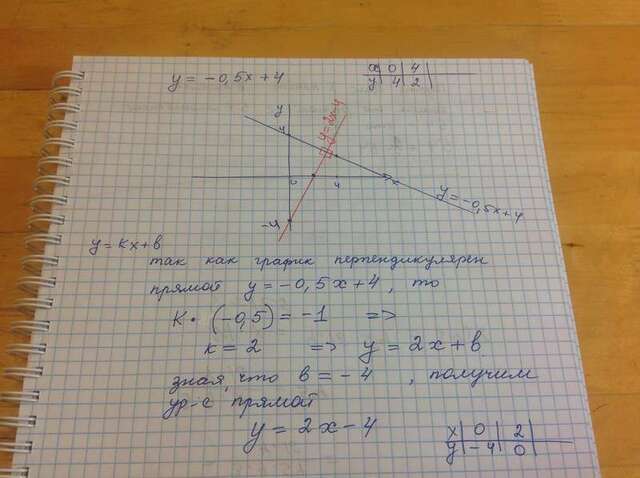 y = -0,5x+4
x 0 4
y 4 2
y
4
y=2x-4
0 4 x
y=-0,5x+4
-4
y=kx+b
так как график перпендикулярен
прямой y=-0,5x+4, то
K·(-0,5)=-1 =>
k=2 => y=2x+b
зная, что b=-4, получим
ур-е прямой
y=2x-4
x 0 2
y -4 0